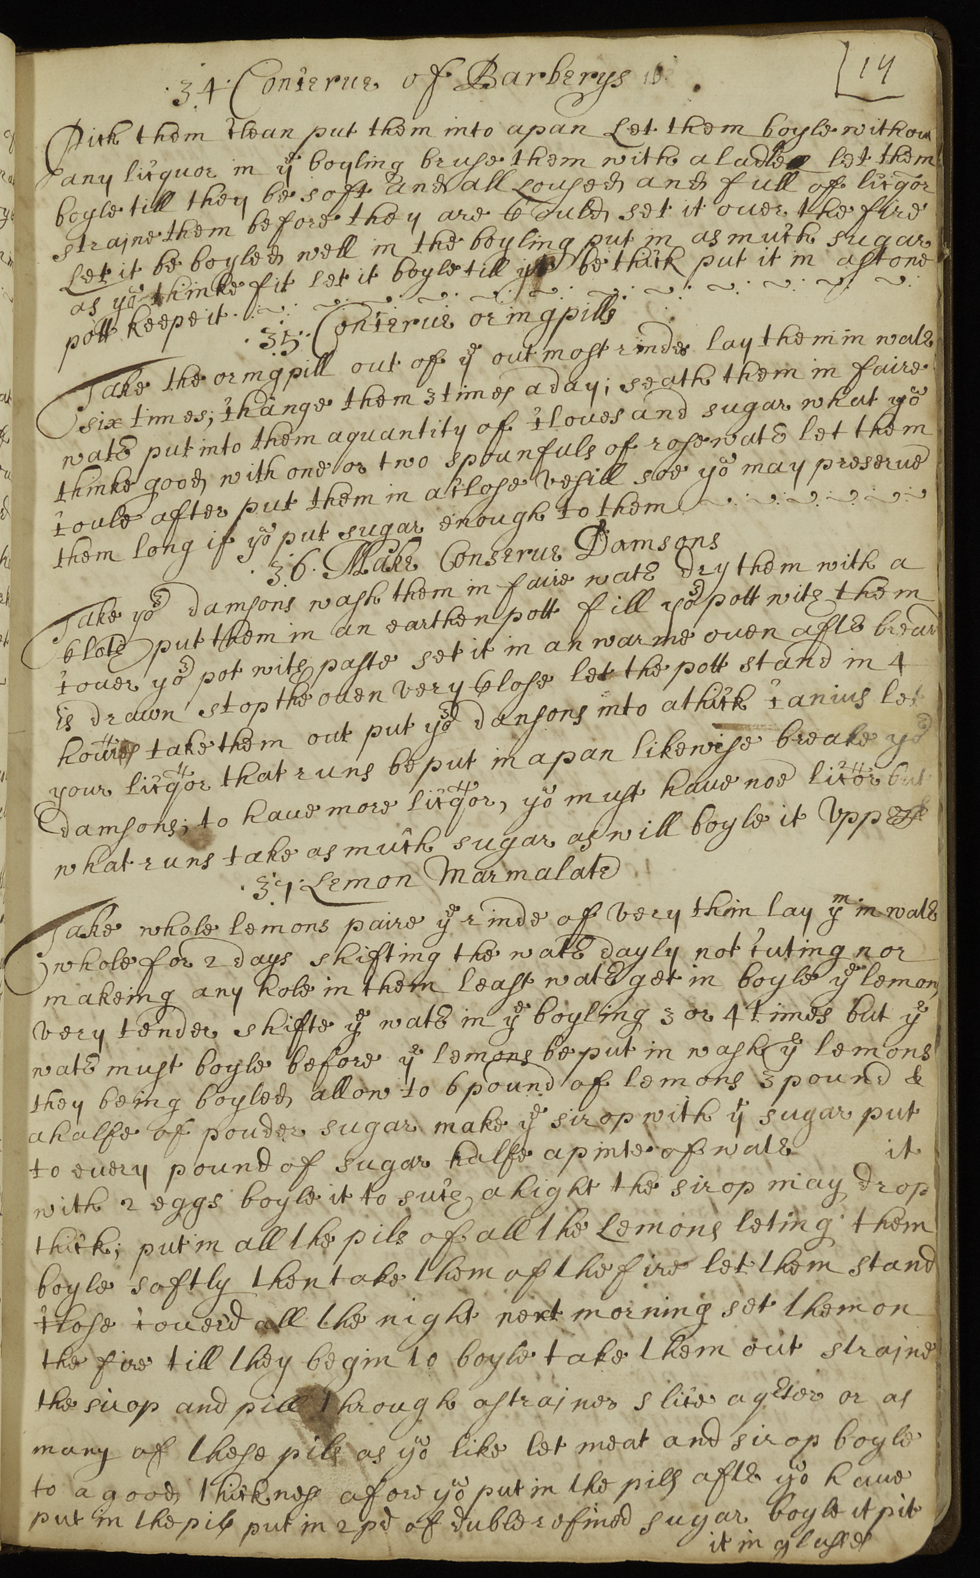 14
34 Conserue of Barberys
Pick them clean put them into a pan Let them boyle withou
any licquor in ye boyling bruse them with a ladle let them
boyle till they be soft and all Loused and full of licqor
straine them before they are Could set it ouer the fire
Let it be boyled well in the boyling put in as much sugar
as yo thinke fit let it boyle till it be thick put it in a stone
pott keepe it
35 Conserue oringpills
Take the oringpill out of ye outmost rinde lay them in wate
six times; change them 3 times a day; seath them in faire
wate put into them a quantity of cloues and sugar what yo
thinke good with one or two spounfuls of rosewate let them
coule after put them in a close vesill soe yo may preserue
them long if yo put sugar enough to them
36 Make Conserue Damsons
Take yor damsons wash them in faire wate dry them with a
Cloth put them in an earthen pott fill yor pott with them
couer yor pot with paste set it in an warme ouen afte bread
is drawn stop the ouen very Close let the pott stand in 4
houres take them out put yor dansons into a thick canius let
your licqor that runs be put in a pan likewise breake yor
damsons; to haue more licqor, yo must haue noe licor but
what runs take as much sugar as will boyle it Vpp
37 Lemon Marmalate
Take whole lemons paire ye rinde of very thin lay ym in wate
whole for 2 days shifting the wate dayly not cuting nor
makeing any hole in them least wate get in boyle ye lemon
very tender shifte ye wate in ye boyling 3 or 4 times but ye
wate must boyle before ye lemons be put in wash ye lemons
they being boyled allow to 6 pound of lemons 3 pound &
a halfe of pouder sugar make ye sirop with ye sugar put
to euery pound of sugar halfe a pinte of wate it
with 2 eggs boyle it to such a hight the sirop may drop
thick; put in all the pils of all the Lemons leting them
boyle softly then take them of the fire let them stand
close couerd all the night next morning set them on
the fire till they begin to boyle take them out straine
the sirop and pill through a strainer slice a qter or as
many of these pils as yo like let meat and sirop boyle
to a good thickness afore yo put in the pills afte yo haue
put in the pils put in 2 pd of duble refined sugar boyle it pit
it in glasses